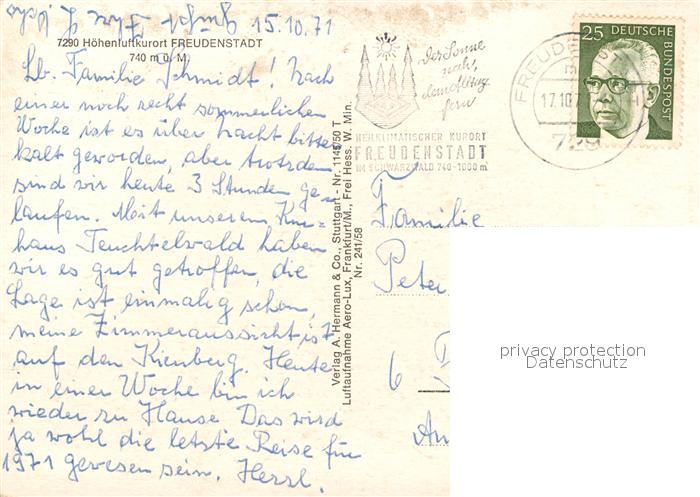 15.10.71
7290 Höhenluftkurort FREUDENSTADT
740 m ü. M.
Lb. Familie Schmidt! Nach
einer noch recht sommerlichen
Woche ist es über Nacht bitter
kalt geworden, aber trotzdem
sind wir heute 3 Stunden ge-
laufen. Mit unserem Kur-
haus Teuchtelwald haben
wir es gut getroffen, die
Lage ist einmalig schön,
meine Zimmeraussicht ist
auf den Kienberg. Heute
in einer Woche bin ich
wieder zu Hause. Das wird
ja wohl die letzte Reise für
1971 gewesen sein. Herzl.
Verlag A. Hermann & Co., Stuttgart - Nr. 1145/50 T
Luftaufnahme Aero-Lux, Frankfurt/M., Frei Hess. W. Min.
Nr. 241/58
Der Sonne
nah,
dem Alltag
fern
HEILKLIMATISCHER KURORT
FREUDENSTADT
IM SCHWARZWALD 740-1000 m
FREUDE
17.10.7
729
25 DEUTSCHE
BUNDESPOST
Familie
Peter
6
privacy protection
Datenschutz